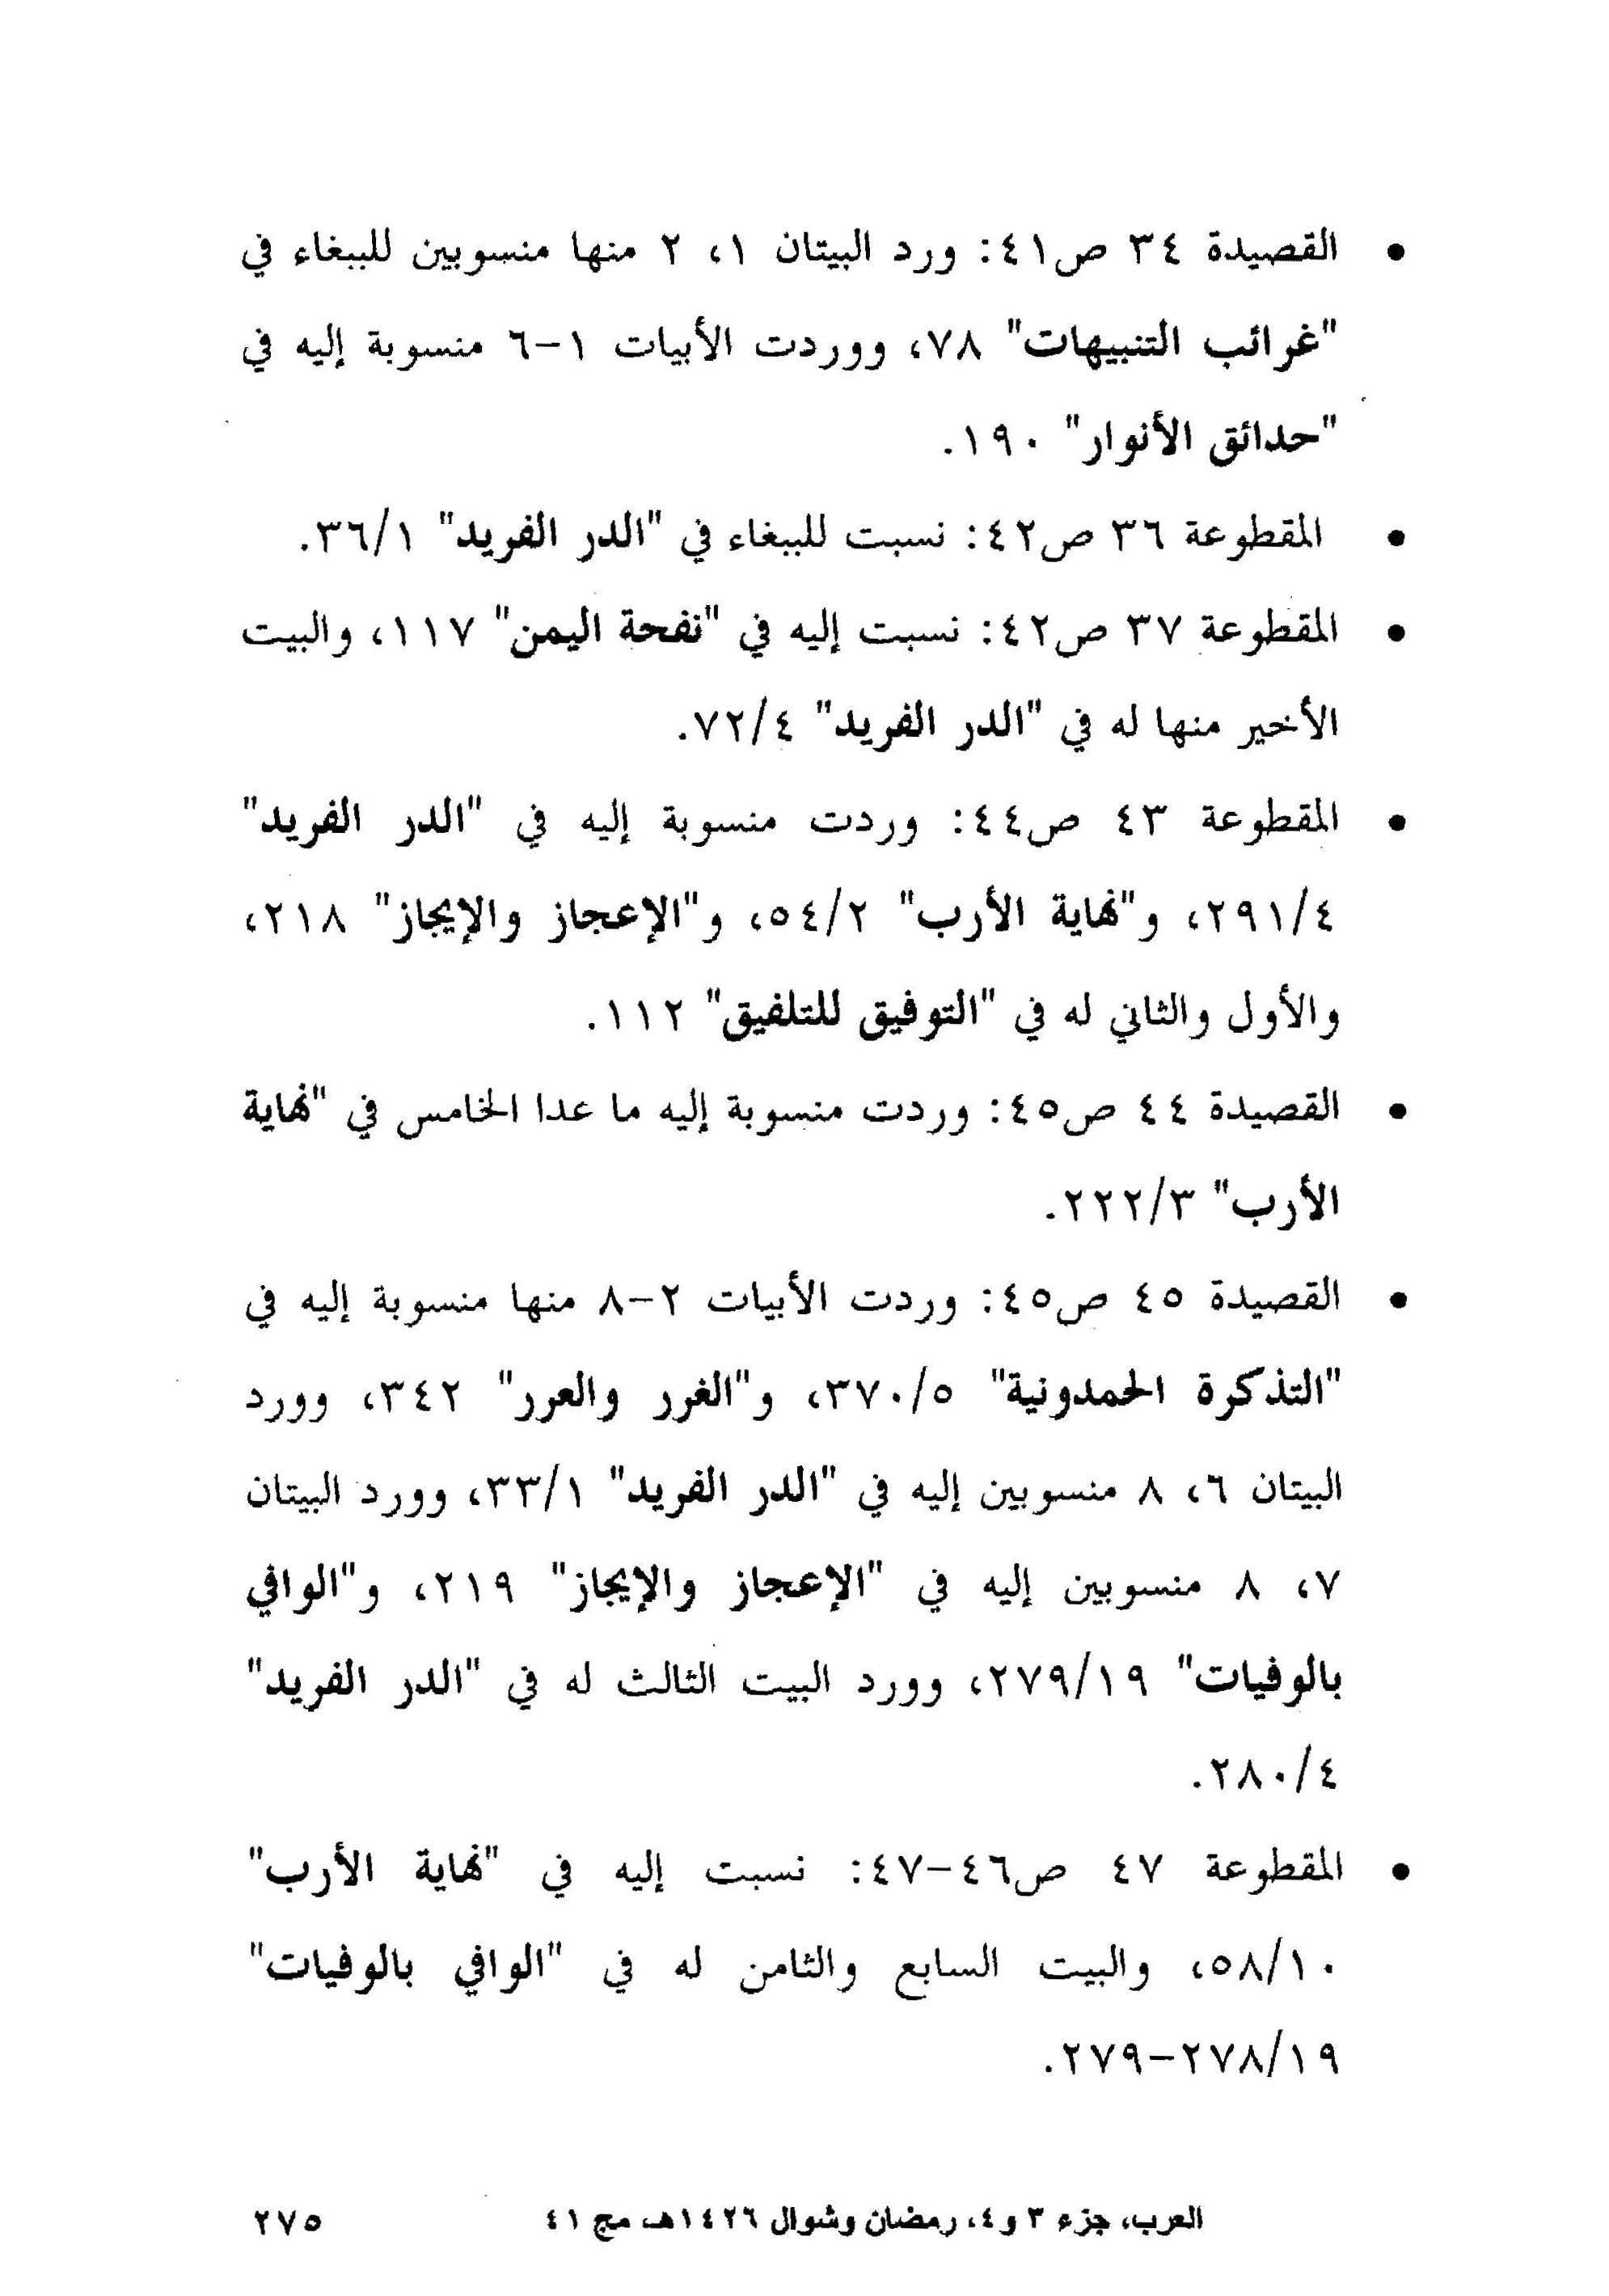 • القصيدة ٣٤ ص٤١: ورد البيتان ١، ٢ منها منسوبين للببغاء في
"غرائب التنبيهات" ٧٨، ووردت الأبيات ١-٦ منسوبة إليه في
"حدائق الأنوار" ١٩٠.
• المقطوعة ٣٦ ص٤٢: نسبت للببغاء في "الدر الفريد" ٣٦/١.
• المقطوعة ٣٧ ص٤٢: نسبت إليه في "نفحة اليمن" ١١٧، والبيت
الأخير منها له في "الدر الفريد" ٧٢/٤.
• المقطوعة ٤٣ ص٤٤: وردت منسوبة إليه في "الدر الفريد"
٢٩١/٤، و"نهاية الأرب" ٥٤/٢، و"الإعجاز والإيجاز" ٢١٨،
والأول والثاني له في "التوفيق للتلفيق" ١١٢.
• القصيدة ٤٤ ص٤٥: وردت منسوبة إليه ما عدا الخامس في "نهاية
الأرب" ٢٢٢/٣.
• القصيدة ٤٥ ص٤٥: وردت الأبيات ٢-٨ منها منسوبة إليه في
"التذكرة الحمدونية" ٣٧٠/٥، و"الغرر والعرر" ٣٤٢، وورد
البيتان ٦، ٨ منسوبين إليه في "الدر الفريد" ٣٣/١، وورد البيتان
٧، ٨ منسوبين إليه في "الإعجاز والإيجاز" ٢١٩، و"الوافي
بالوفيات" ٢٧٩/١٩، وورد البيت الثالث له في "الدر الفريد"
٢٨٠/٤.
• المقطوعة ٤٧ ص٤٦-٤٧: نسبت إليه في "نهاية الأرب"
٥٨/١٠، والبيت السابع والثامن له في "الوافي بالوفيات"
٢٧٨/١٩-٢٧٩.
العرب، جزء ٣ و٤، رمضان وشوال ١٤٢٦هـ، مج ٤١ ٢٧٥